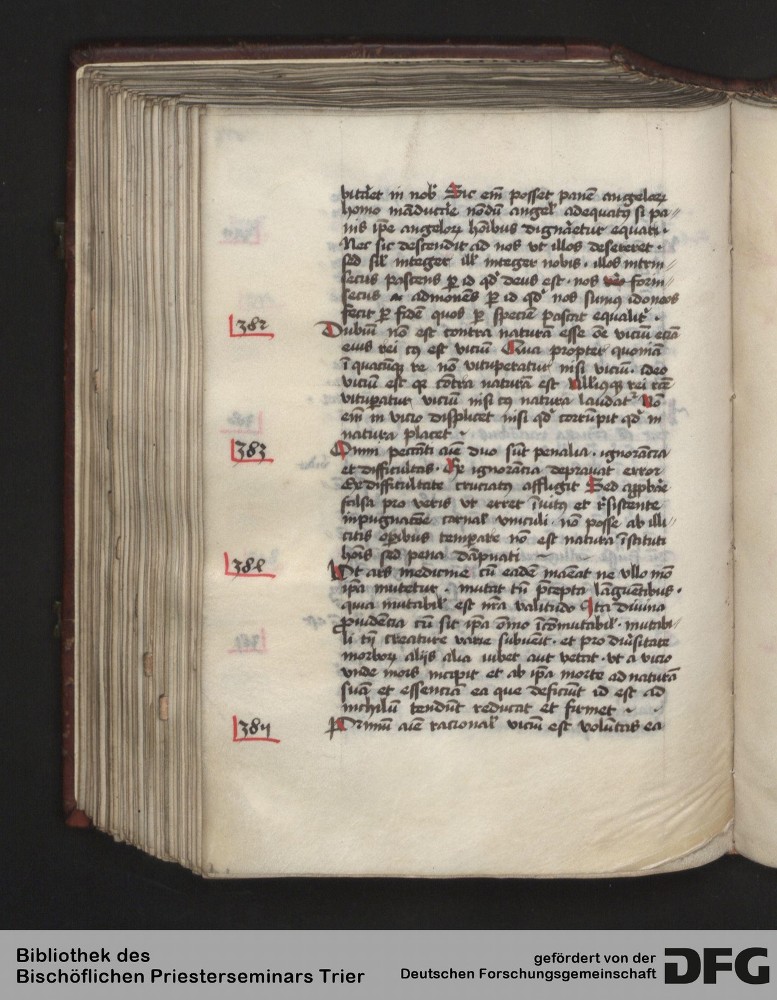 bitaret in nob̄ Sic em̄ posset panē angelorꝝ
homo māducare nōdū angel' adequatꝰ si pa〃
nis ip̄e angelorꝝ hōibus dignaretur equari ·
Nec sic descendit ad nos vt illos desereret ·
sed sil' integer ill' integer nobis · illos intrin〃
secus pascens ꝑ id qđ deus est · nos v̄o forin〃
secus admonēs ꝑ id qđ nos sumꝰ idoneos
fecit ꝑ fidē quos ꝑ speciē pascat equalit̄ ·
382 Dubiū nō est contra naturā esse o̅e viciū etiā
eius rei cꝰ est viciū Qua propter quoniā
ī quacūqꝫ re nō vituperatur nisi viciū · ideo
viciū est qꝛ cōtra naturā est Nulliꝰqꝫ rei rc̄e
vituꝑatur viciū nisi cꝰ natura laudat᷑ Nō
em̄ in vicio displicet nisi qđ corrūpit qđ in
natura placet ·
383 Omni peccāti aīe duo sūt penalia · ignorācia
et difficultas · Ex ignorācia deprauat error
Ex difficultate cruciatꝰ affligit Sed approbare
falsa pro veris vt erret īuitꝰ et r̄sistente
inpugnacōe carnal' vinculi · nō posse ab illi〃
citis oꝑibus temꝑare nō est natura īstituti
hoīs sed pena dāpnati
384 Vt ars medicine cū eadē maneat ne vllo mō
ip̄a mutetur · mutat tn̄ p̄cepta lāguētibus ·
quia mutabil' est nr̄a valitudo Ita diuina
ꝓuidēcia cū sit ip̄a oīno īcōmutabil' · mutabi〃
li tn̄ creature varie subuēit · et pro diūsitate
morborꝝ alijs alia iubet aut vetat · vt a vicio
vnde mors incipit et ab ip̄a morte ad naturā
suā et essenciā ea que deficiūt id est ad
nichilū tendūt reducat et firmet ·
385 Primū aīe racional' viciū est volūtas ea
Bibliothek des
Bischöflichen Priesterseminars Trier
gefördert von der
Deutschen Forschungsgemeinschaft DFG